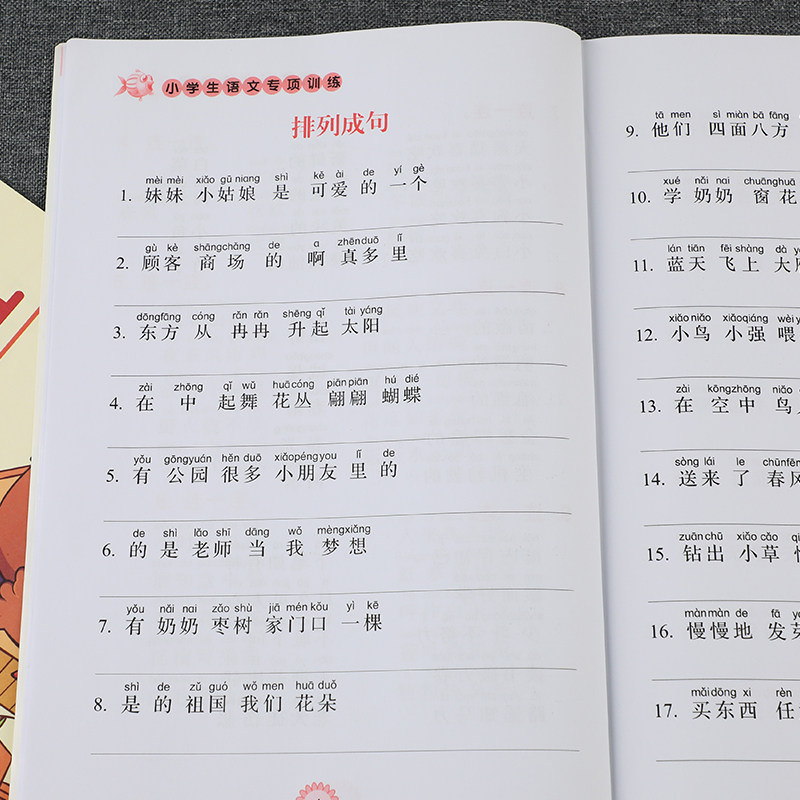 小学生语文专项训练
排列成句
mèi mèi xiǎo gū niang shì kě ài de yí gè
1. 妹妹 小姑娘 是 可爱 的 一个
gù kè shāngchǎng de a zhēnduō lǐ
2. 顾客 商场 的 啊 真多 里
dōngfāng cóng rǎn rǎn shēng qǐ tài yáng
3. 东方 从 冉冉 升起 太阳
zài zhōng qǐ wǔ huācóng piānpiān hú dié
4. 在 中 起舞 花丛 翩翩 蝴蝶
yǒu gōngyuán hěn duō xiǎopéngyou lǐ de
5. 有 公园 很多 小朋友 里 的
de shì lǎo shī dāng wǒ mèngxiǎng
6. 的 是 老师 当 我 梦想
yǒu nǎi nai zǎo shù jiā ménkǒu yì kē
7. 有 奶奶 枣树 家门口 一棵
shì de zǔ guó wǒ men huā duǒ
8. 是 的 祖国 我们 花朵
tā men sì miàn bā fāng
9. 他们 四面八方
xué nǎi nai chuānghuā
10. 学 奶奶 窗花
lán tiān fēi shàng dà
11. 蓝天 飞上 大
xiǎo niǎo xiǎoqiáng wèi
12. 小鸟 小强 喂
zài kōngzhōng niǎo
13. 在 空中 鸟
sòng lái le chūnfēn
14. 送来 了 春风
zuān chū xiǎo cǎo
15. 钻出 小草
màn màn de fā
16. 慢慢地 发
mǎi dōng xi rèn
17. 买东西 任